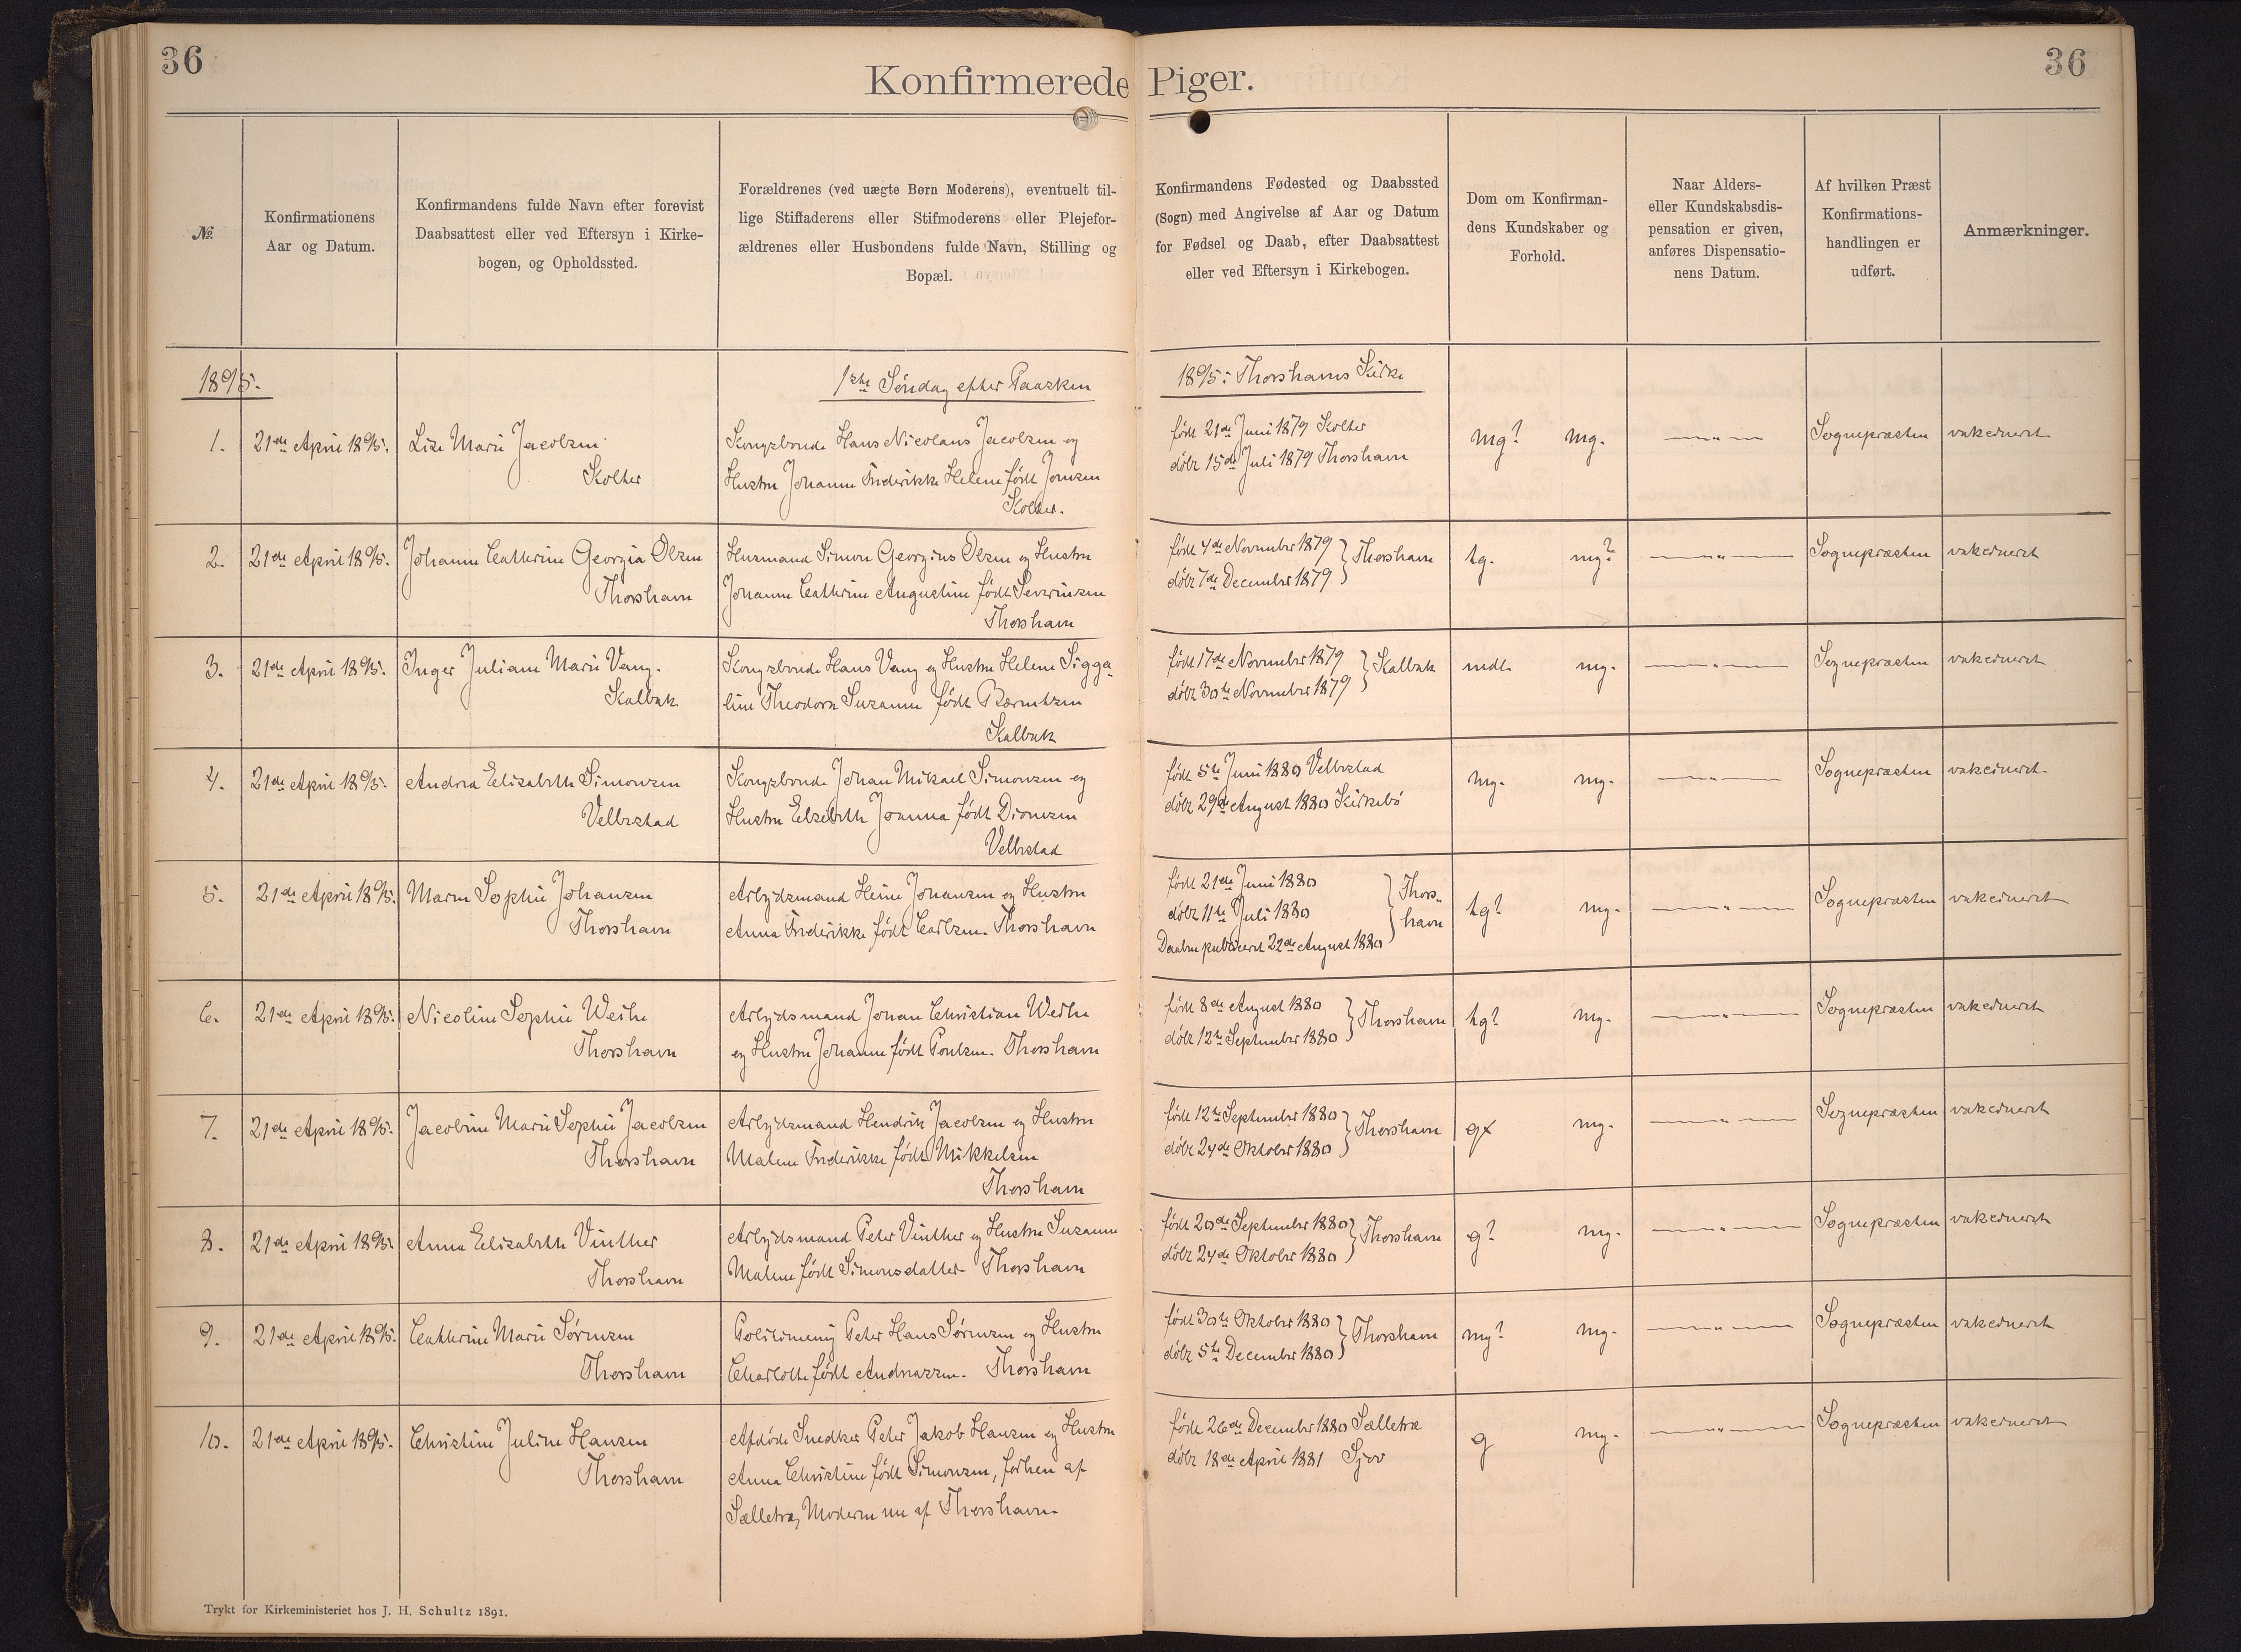 36
36
Konfirmerede Piger.
№.
Konfirmationens
Aar og Datum.
Konfirmandens fulde Navn efter forevist
Daabsattest eller ved Eftersyn i Kirke-
bogen, og Opholdssted.
Forældrenes (ved uægte Børn Moderens), eventuelt til-
lige Stiffaderens eller Stifmoderens eller Plejefor-
ældrenes eller Husbondens fulde Navn, Stilling og
Bopæl.
Konfirmandens Fødested og Daabssted
(Sogn) med Angivelse af Aar og Datum
for Fødsel og Daab, efter Daabsattest
eller ved Eftersyn i Kirkebogen.
Dom om Konfirman-
dens Kundskaber og
Forhold.
Naar Alders-
eller Kundskabsdis-
pensation er given,
anføres Dispensatio-
nens Datum.
Af hvilken Præst
Konfirmations-
handlingen er
udført.
Anmærkninger.
1895.
1ste Søndag efter Paasken
1895: Thorshavns Kirke
1.
21de April 1895.
Lise Marie Jacobsen
Kolter
Kongsbonde Hans Nicolaus Jacobsen og
Hustru Johanne Frederikke Helene født Joensen
Kolter.
født 21de Juni 1879 Kolter
døbt 15de Juli 1879 Thorshavn
mg? mg.
Sognepræsten
vakcineret
2.
21de April 1895.
Johanne Cathrine Georgia Olsen
Thorshavn
Husmand Simon Georgius Olsen og Hustru
Johanne Cathrine Augustine født Severinsen
Thorshavn
født 4de November 1879
døbt 7de December 1879
Thorshavn
tg. mg?
Sognepræsten
vakcineret
3.
21de April 1895.
Inger Juliane Marie Vang.
Kalbak
Kongsbonde Hans Vang og Hustru Helene Sigga-
line Theodora Susanne født Bærentsen
Kalbak
født 17de November 1879
døbt 30te November 1879
Kalbak
mdt. mg.
Sognepræsten
vakcineret
4.
21de April 1895.
Andrea Elisabeth Simonsen
Velbestad
Kongsbonde Johan Mikael Simonsen og
Hustru Elsebeth Joanna født Dionesen
Velbestad
født 5te Juni 1880 Velbestad
døbt 29de August 1880 Kirkebø
mg. mg.
Sognepræsten
vakcineret.
5.
21de April 1895.
Maren Sophie Johansen
Thorshavn
Arbejdsmand Heine Johansen og Hustru
Anna Frederikke født Carlsen. Thorshavn
født 21de Juni 1880
døbt 11te Juli 1880
Daaben publiceret 22de August 1880
Thors-
havn
tg? mg.
Sognepræsten
vakcineret
6.
21de April 1895.
Nicoline Sophie Weihe
Thorshavn
Arbejdsmand Johan Christian Weihe
og Hustru Johanne født Poulsen. Thorshavn
født 8de August 1880
døbt 12te September 1880
Thorshavn
tg? mg.
Sognepræsten
vakcineret
7.
21de April 1895.
Jacobine Marie Sophie Jacobsen
Thorshavn
Arbejdsmand Hendrik Jacobsen og Hustru
Malene Frederikke født Mikkelsen
Thorshavn
født 12te September 1880
døbt 24de Oktober 1880
Thorshavn
gx mg.
Sognepræsten
vakcineret
8.
21de April 1895.
Anna Elisabeth Vinther
Thorshavn
Arbejdsmand Peter Vinther og Hustru Susanne
Malene født Simonsdatter. Thorshavn
født 20de September 1880
døbt 24de Oktober 1880
Thorshavn
g? mg.
Sognepræsten
vakcineret
9.
21de April 1895.
Cathrine Marie Sørensen
Thorshavn
Politimenig Peter Hans Sørensen og Hustru
Charlotte født Andreassen. Thorshavn
født 30te Oktober 1880
døbt 5te December 1880
Thorshavn
mg? mg.
Sognepræsten
vakcineret
10.
21de April 1895.
Christine Juline Hansen
Thorshavn
Afdøde Snedker Peter Jakob Hansen og Hustru
Anna Christine født Simonsen, forhen af
Sælletræ, Moderen nu af Thorshavn.
født 26de December 1880 Sælletræ
døbt 18de April 1881 Sjov
g mg.
Sognepræsten
vakcineret
Trykt for Kirkeministeriet hos J. H. Schultz 1891.